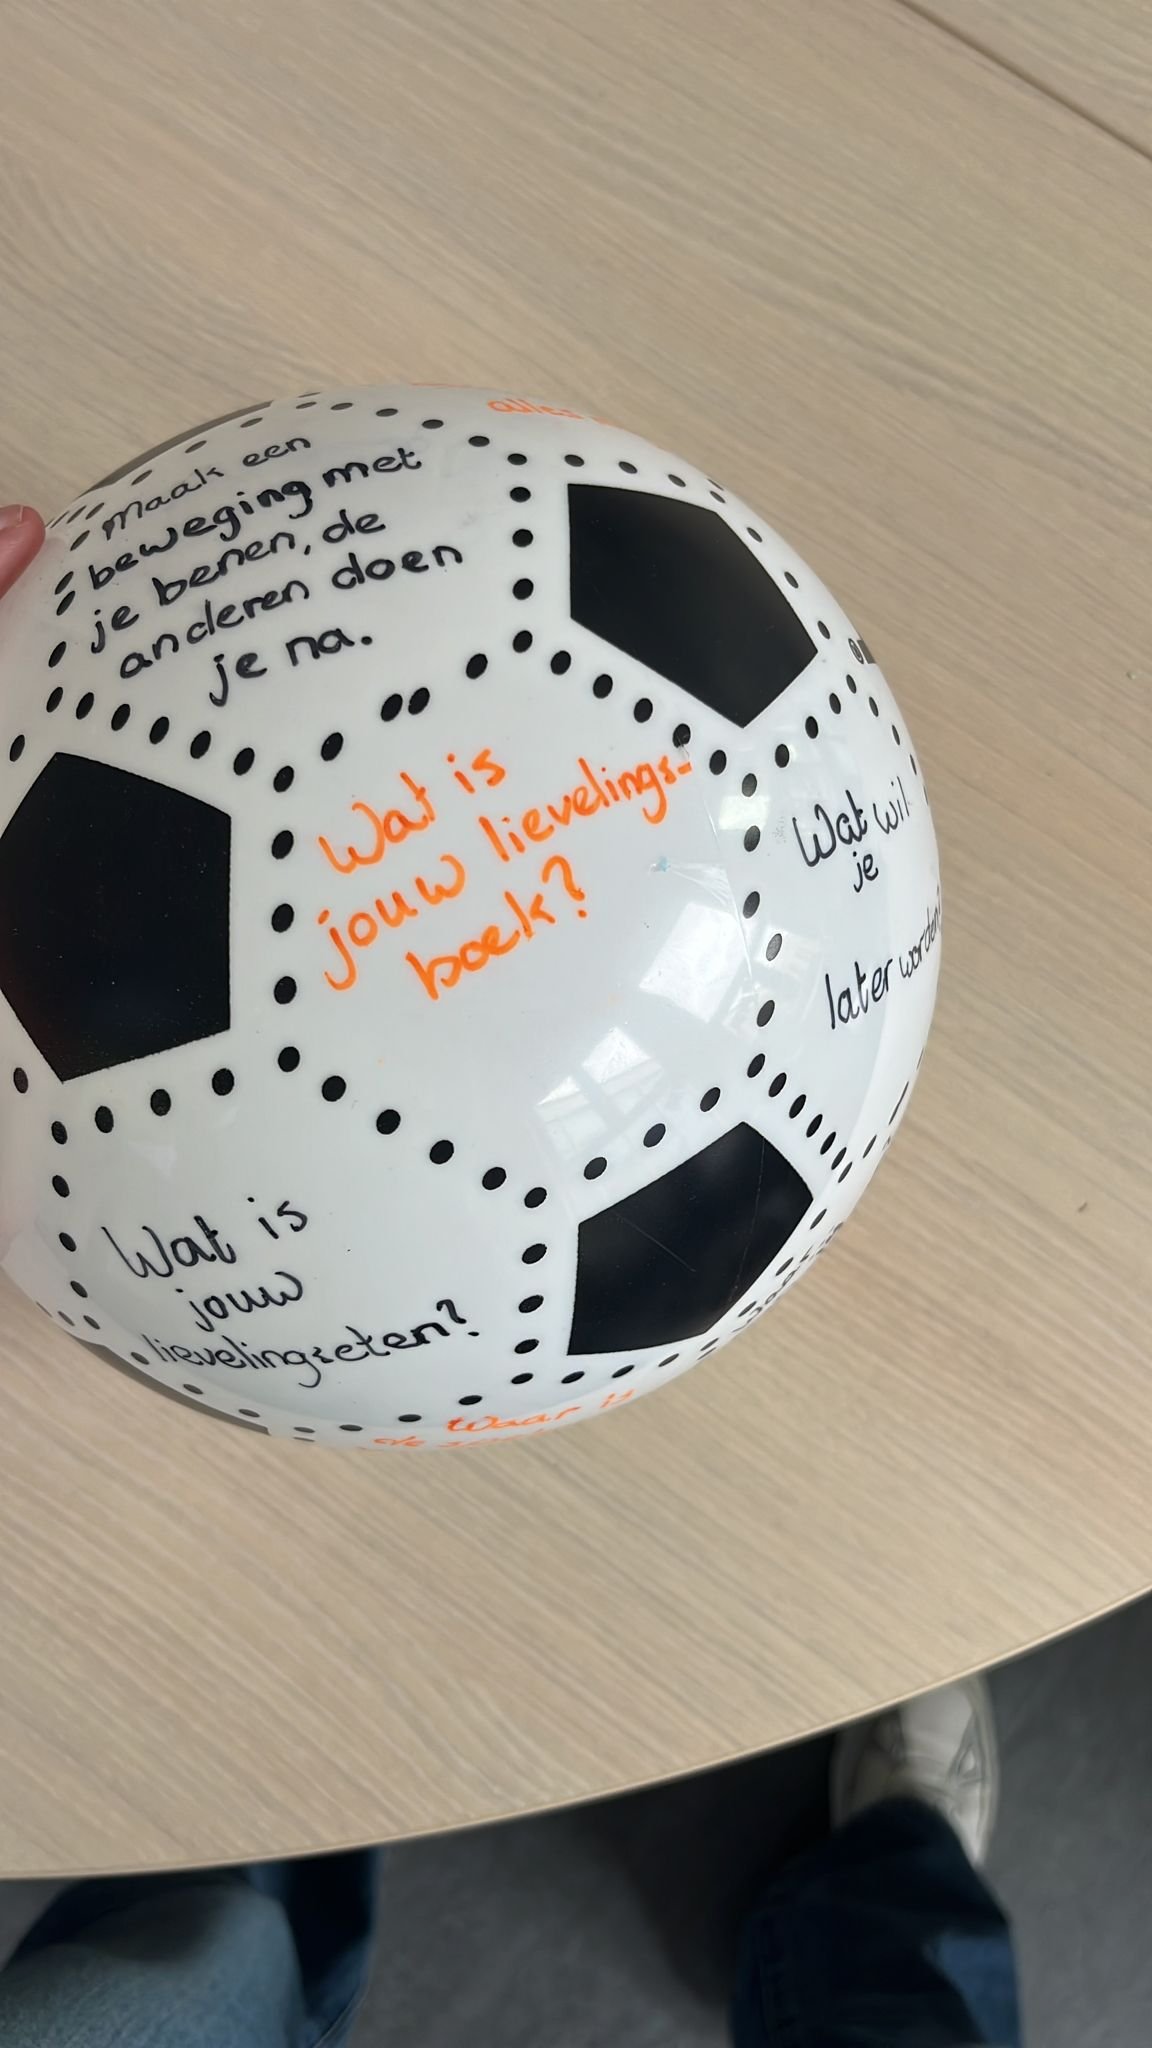 alles
maak een
beweging met
je benen, de
anderen doen
je na.
Wat is
jouw lievelings-
boek?
Wat wil
je
later worden?
Wat is
jouw
lievelingseten?
Waar is
de